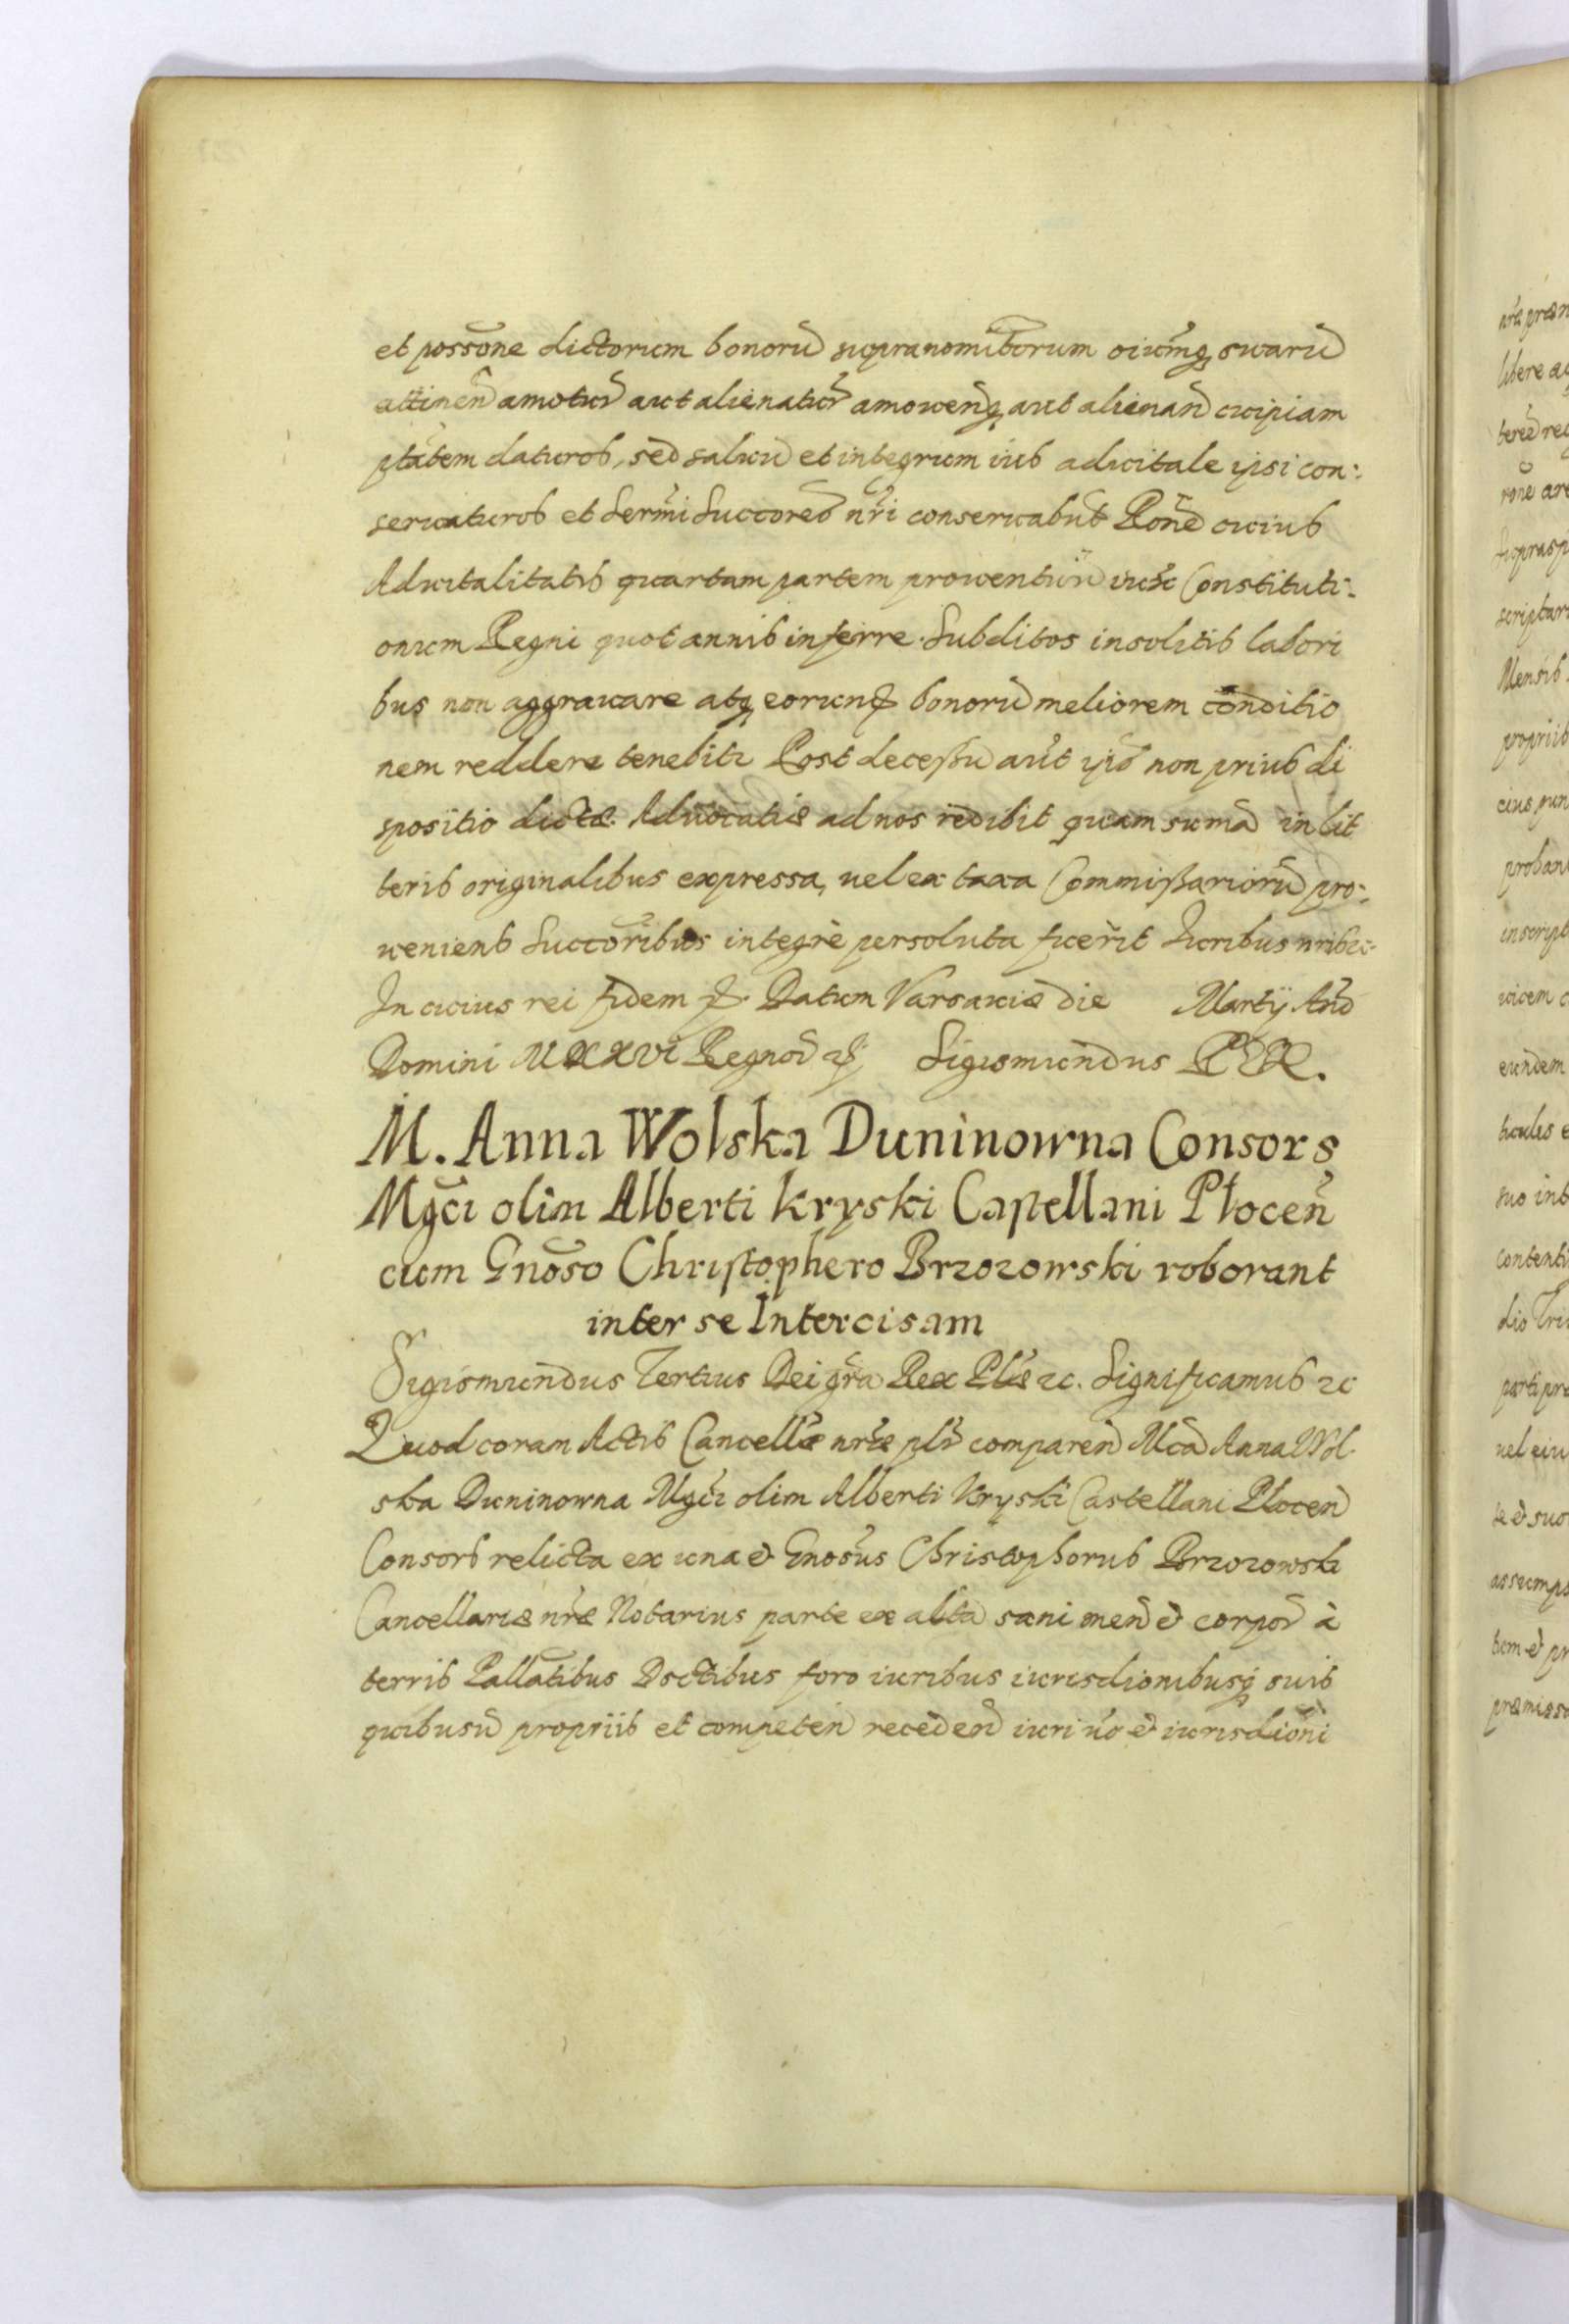 et possone dictorum bonorū supranominatorum oiumq, suarū
attinen̄ amotur̄ aut alienatur̄ amouendq, aut alienand̄ cuipiam
ptatem daturos, sed saluū et integrum ius aduitale ipsi con-
seruaturos et Sermi Succores nri conseruabūt Rone cuius
Aduitalitatis quartam partem prouentuū iuxta Constituti-
onum Regni quotannis inferre. Subditos insolitis labori
bus non aggrauare atq, eorund bonorū meliorem conditio
nem reddere tenebitr Post decessū aūt ipīs non prius di
spositio dictæ Aduocatiæ ad nos redibit quam suma in lit
teris originalibus expressa, uel ex taxa Commissariorū pro-
ueniens Succoribus integrè persoluta fuerit Iuribus nris etc
In cuius rei fidem etc. Datum Varsauiæ die Martÿ Anō
Domini MDXXVI Regnor̄ etc Sigismundus Rex.
M. Anna Wolska Duninowna Consors
Mgci olim Alberti Kryski Castellani Płocen̄
cum Gnoso Christophero Brzozowski roborant
inter se Intercisam
Sigismundus Tertius Dei gra Rex Pliæ etc. Significamus etc
Quod coram Actis Cancellæ nræ plr comparen̄ Mca Anna Wol-
ska Duninowna Mgci olim Alberti Kryski Castellani Plocen̄
Consors relicta ex una et Gnosus Christophorus Brzozowski
Cancellariæ nræ Notarius parte ex alta sani men̄ et corpor̄ à
terris Pallatibus Dsctibus foro iuribus iurisdionibusq, suis
quibusū propriis et competen̄ receden̄ iuri uo et iurisdioni